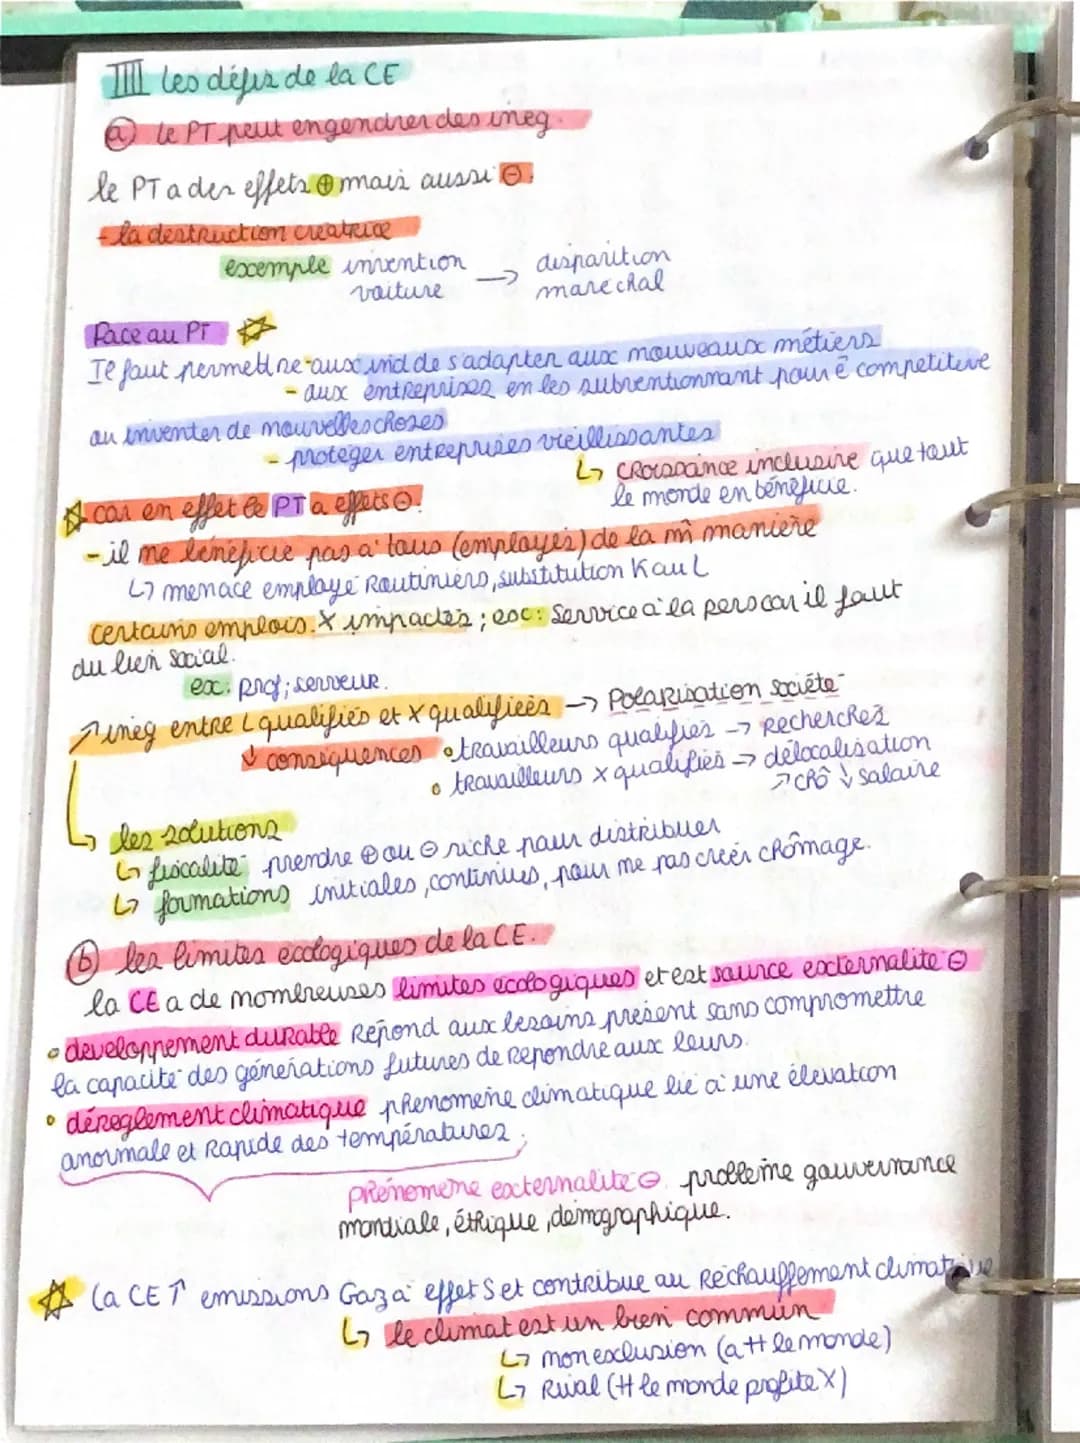 III les défis de la CE
a) le PT peut engendrer des ineg.
le PT a des effets ⊕ mais aussi ⊖.
- la destruction creatrice
exemple invention voiture → disparition marechal
Face au PT ☆
Il faut permettre - aux ind de s'adapter aux nouveaux métiers
- aux entreprises en les subventionnant pour ê competitive
ou inventer de nouvelles choses
- proteger entreprises vieillissantes
↳ croissance inclusive que tout
le monde en bénéficie.
☆ car en effet le PT a effets ⊖.
- il ne bénéficie pas à tous (employés) de la m̂ manière
↳ menace employé Routiniers, substitution K au L
certains emplois X impactés ; ex: Service à la pers car il faut
du lien social.
ex: prof; serveur.
↗ ineg entre L qualifiés et X qualifiées → Polarisation société
↓ conséquences • travailleurs qualifiés → Recherchés
• travailleurs X qualifiés → délocalisation
↗ chô ↓ salaire
↳ les solutions
↳ fiscalité prendre ⊕ ou ⊖ riche pour distribuer
↳ formations initiales, continues, pour ne pas créer chômage.
b) les limites ecologiques de la CE.
la CE a de nombreuses limites ecologiques et est source externalité ⊖
• developpement durable Répond aux besoins présent sans compromettre
la capacité des générations futures de repondre aux leurs.
• déreglement climatique phénomène climatique lié à une élévation
anormale et Rapide des températures.
phénomene externalité ⊖. problème gouvernance
mondiale, éthique, démographique.
☆ la CE ↑ emissions Gaz à effet S et contribue au Rechauffement climatique
↳ le climat est un bien commun
↳ non exclusion (a tt le monde)
↳ Rival (tt le monde profite X)